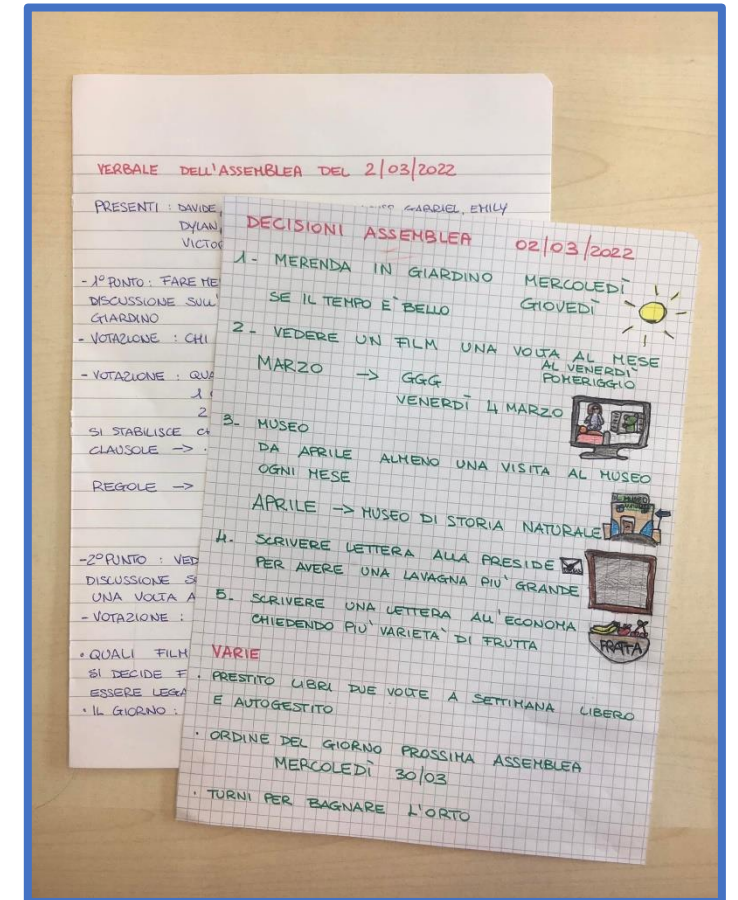 VERBALE DELL'ASSEMBLEA DEL 2/03/2022
PRESENTI : DAVIDE, GABRIEL, EMILY
DYLAN,
VICTO
- 1° PUNTO : FARE ME
DISCUSSIONE SULL'
GIARDINO
- VOTAZIONE : CHI
- VOTAZIONE : QUA
1
2
SI STABILISCE
CLAUSOLE ->
REGOLE ->
-2° PUNTO : VED
DISCUSSIONE S
UNA VOLTA A
- VOTAZIONE :
• QUALI FILM
SI DECIDE F
ESSERE LEGA
• IL GIORNO :
DECISIONI ASSEMBLEA 02/03/2022
1- MERENDA IN GIARDINO MERCOLEDÌ
SE IL TEMPO E` BELLO GIOVEDÌ
2- VEDERE UN FILM UNA VOLTA AL MESE
AL VENERDI`
POMERIGGIO
MARZO -> GGG
VENERDÌ 4 MARZO
3- MUSEO
DA APRILE ALMENO UNA VISITA AL MUSEO
OGNI MESE
APRILE -> MUSEO DI STORIA NATURALE
IL MUSEO
4. SCRIVERE LETTERA ALLA PRESIDE
PER AVERE UNA LAVAGNA PIU` GRANDE
5. SCRIVERE UNA LETTERA ALL'ECONOMA
CHIEDENDO PIU` VARIETA` DI FRUTTA
FRATTA
VARIE
• PRESTITO LIBRI DUE VOLTE A SETTIMANA LIBERO
E AUTOGESTITO
• ORDINE DEL GIORNO PROSSIMA ASSEMBLEA
MERCOLEDÌ 30/03
• TURNI PER BAGNARE L'ORTO